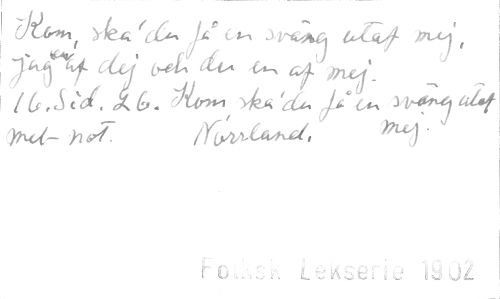 Kom, ska' du få en sväng utaf mej,
jag en af dej och du en af mej.
16. Sid. 26. Kom ska' du få en sväng utaf
mel- not. Norrland. mej.
Folksk Lekserie 1902